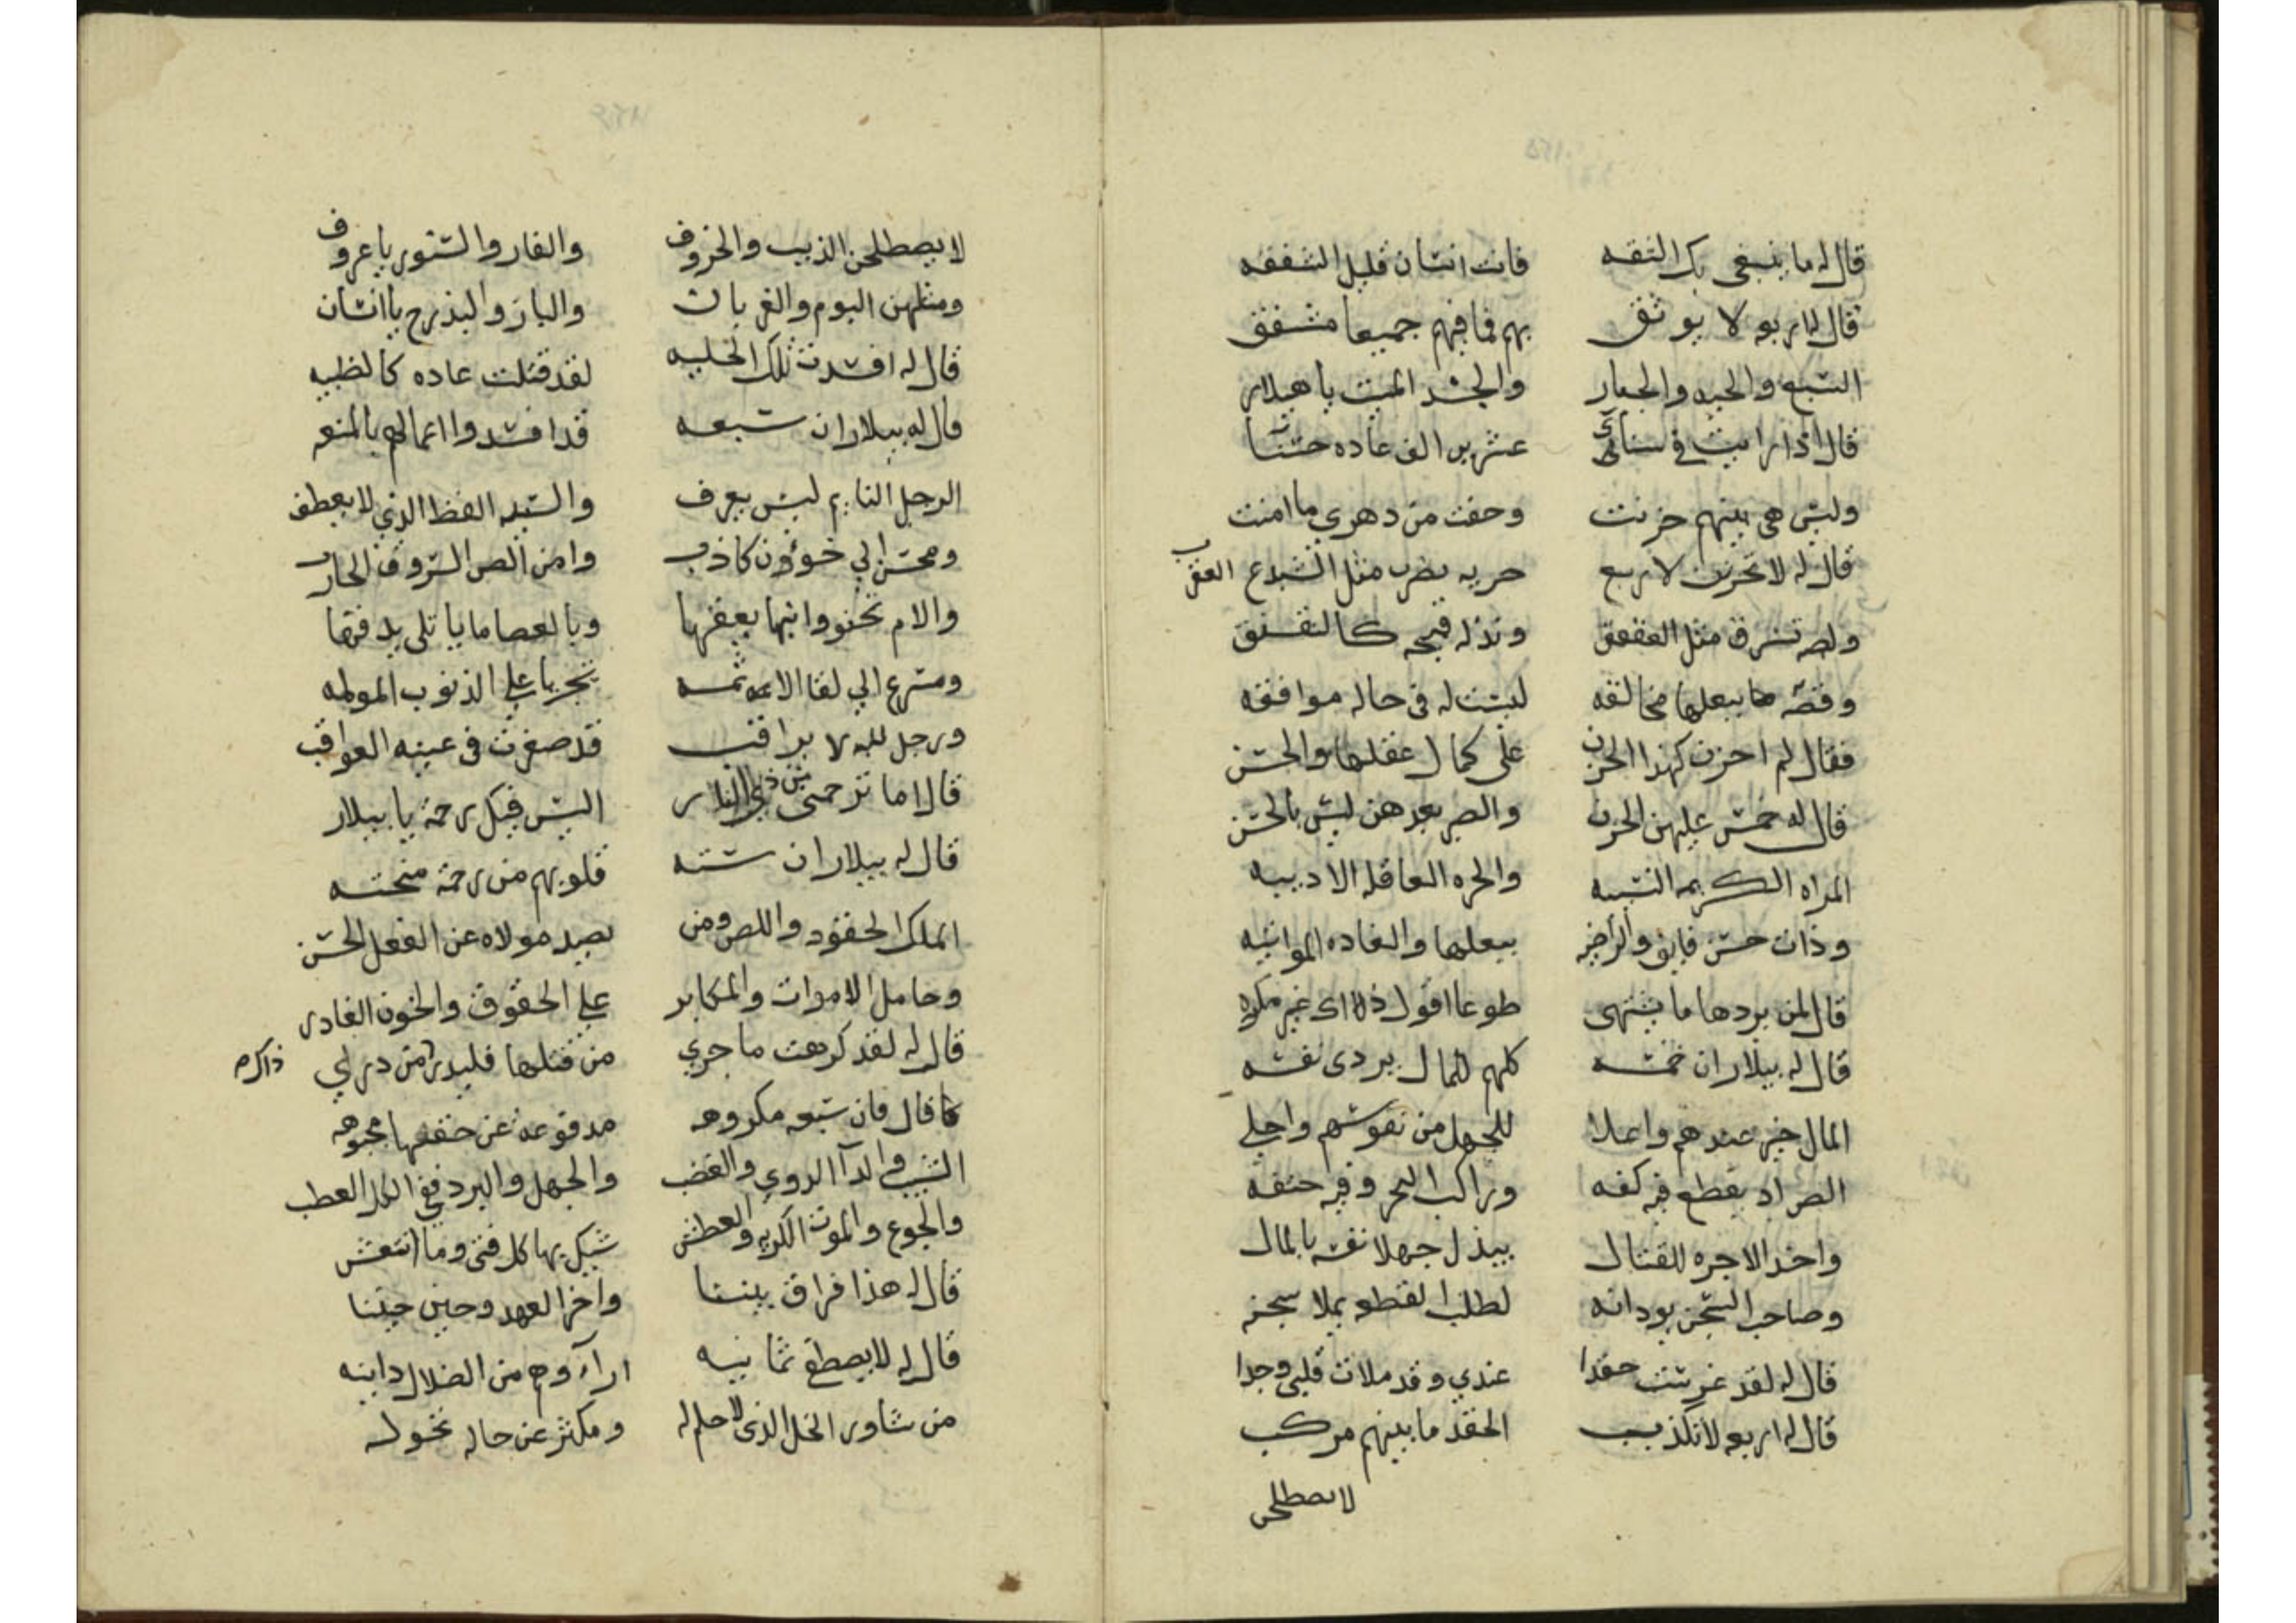 قال له ما ينبغي بك الثقه فانت انسان قليل الشفقه
قال له اربعه لا يوثق بهم فما فيهم جميعا مشفق
السبع والحيه والجبار والجسد الميت يا هيلار
قال اذا رايت في نسائي عشرين الف غاده حسنا
وليس هي بينهم حزنت وخفت من دهري ما امنت
قال له لا تحزنن لاربع حريه بضرب مثل الشبدع العقرب
ولصه تسرق مثل العقعق ونذله قبيحه كالنقنق
وفظه ببعلها مخالفه ليست له في حاله موافقه
فقال لم احزن كهذا الحزن على كمال عقلها والحسن
قال له خمس عليهن الحزن والصبر بعدهن ليس بالحسن
المراه الكريمه النسيبه والحره العاقله الاديبه
وذات حسن فايق والراضيه ببعلها والغاده المواتيه
قال لمن يردها ما يشتهي طوعا اقول ذا غير مكره
قال له بيلار ان خمسه كلهم للمال يردى نفسه
المال خير عندهم واعلا للجهل من نفوسهم واحلى
اللص اذ يقطع فيه كفه وراكب البحر وفيه حتفه
واخذ الاجره للقتال يبذل جهلا نفسه بالمال
وصاحب السجن لطلب القطعه يملا سجنه
قال له لقد غرست حقدا عندي وقد ملات قلبي وجدا
قال له اربعه لا تكذب الحقد ما بينهم مركب
لا يصطلحن
لا يصطلحن الذيب والخروف والفار والسنور يا عروف
ومثلهن البوم والغربان والباز والبذرج يا انسان
قال له افسدت تلك الخليه لقد قتلت غاده كالظبيه
قال له بيلار ان سبعه قد افسدوا اعمالهم بالمنعه
الرجل النايم ليس يعرف والسيد الفظ الذي لا يعطف
ومحسن الي خؤون كاذب وامن اللص السروق الحارب
والام تحنو وابنها يعقها وبالعصا ما
ومسرع الي لقا على الذنوب المولمه
ورجل لله لا يراقب قد صغرت في عينه العواقب
قال اما ترحمني من ذي النار اليس فيك رحمة يا بيلار
قال له بيلار ان سته قلوبهم من رحمة منحته
الملك الحقود واللص ومن يصد مولاه عن الفعل الحسن
وحامل الاموات والمكابر على الحقوق والخون الغادر
قال له لقد كرهت ما جري من قتلها فليدر من دري ذاكره
قال فان سبعه مكروهه مدفوعه عن حقها مجبوهه
الشيب والدآ الدوي والغضب والجهل والبرد ففي الكل العطب
والجوع والموت الكريه والعطش شيك بها كل فتى وما انتعش
قال له هذا فراق بيننا واخر العهد وحين حيننا
قال له لا يصطفى ثمانيه ارآوهم من الضلال دانيه
من شاور الخل الذى لا حلم له ومكثر عن حاله تحوله